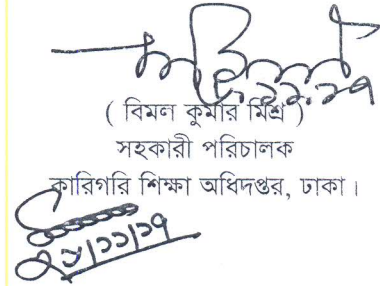 ( বিমল কুমার মিশ্র )
সহকারী পরিচালক
কারিগরি শিক্ষা অধিদপ্তর, ঢাকা।